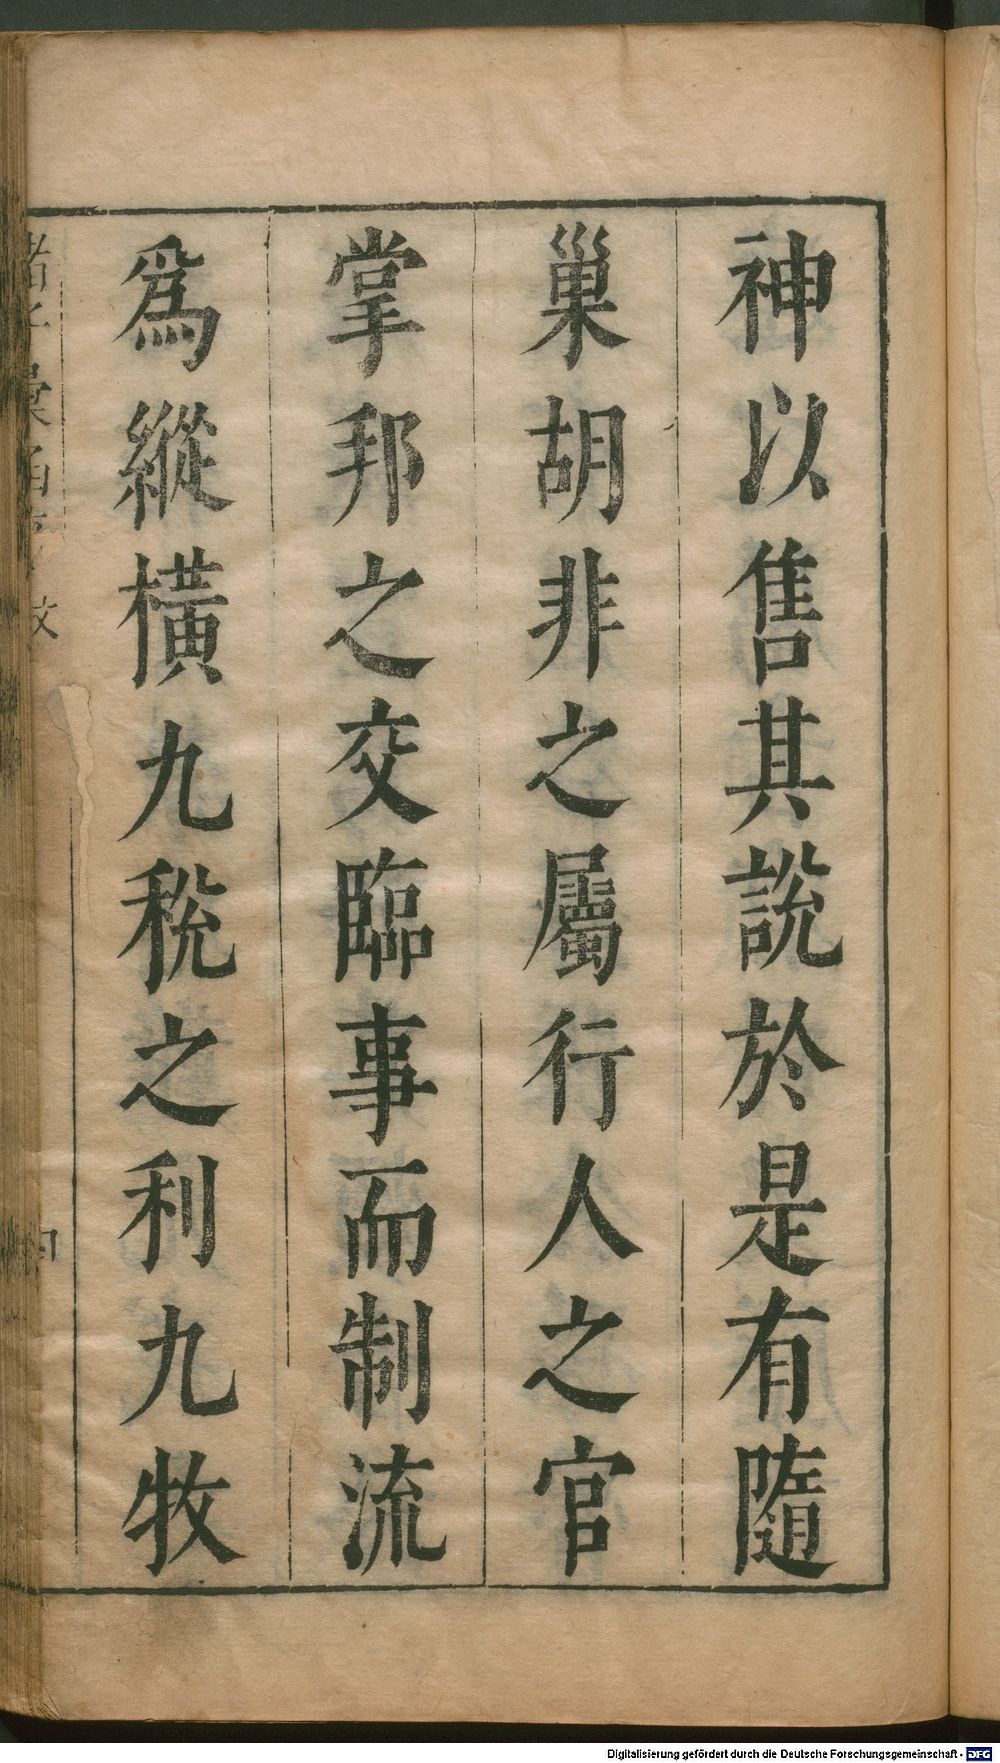 神以售其說於是有隨
巢胡非之屬行人之官
掌邦之交臨事而制流
爲縱橫九稅之利九牧
Digitalisierung gefördert durch die Deutsche Forschungsgemeinschaft - DFG